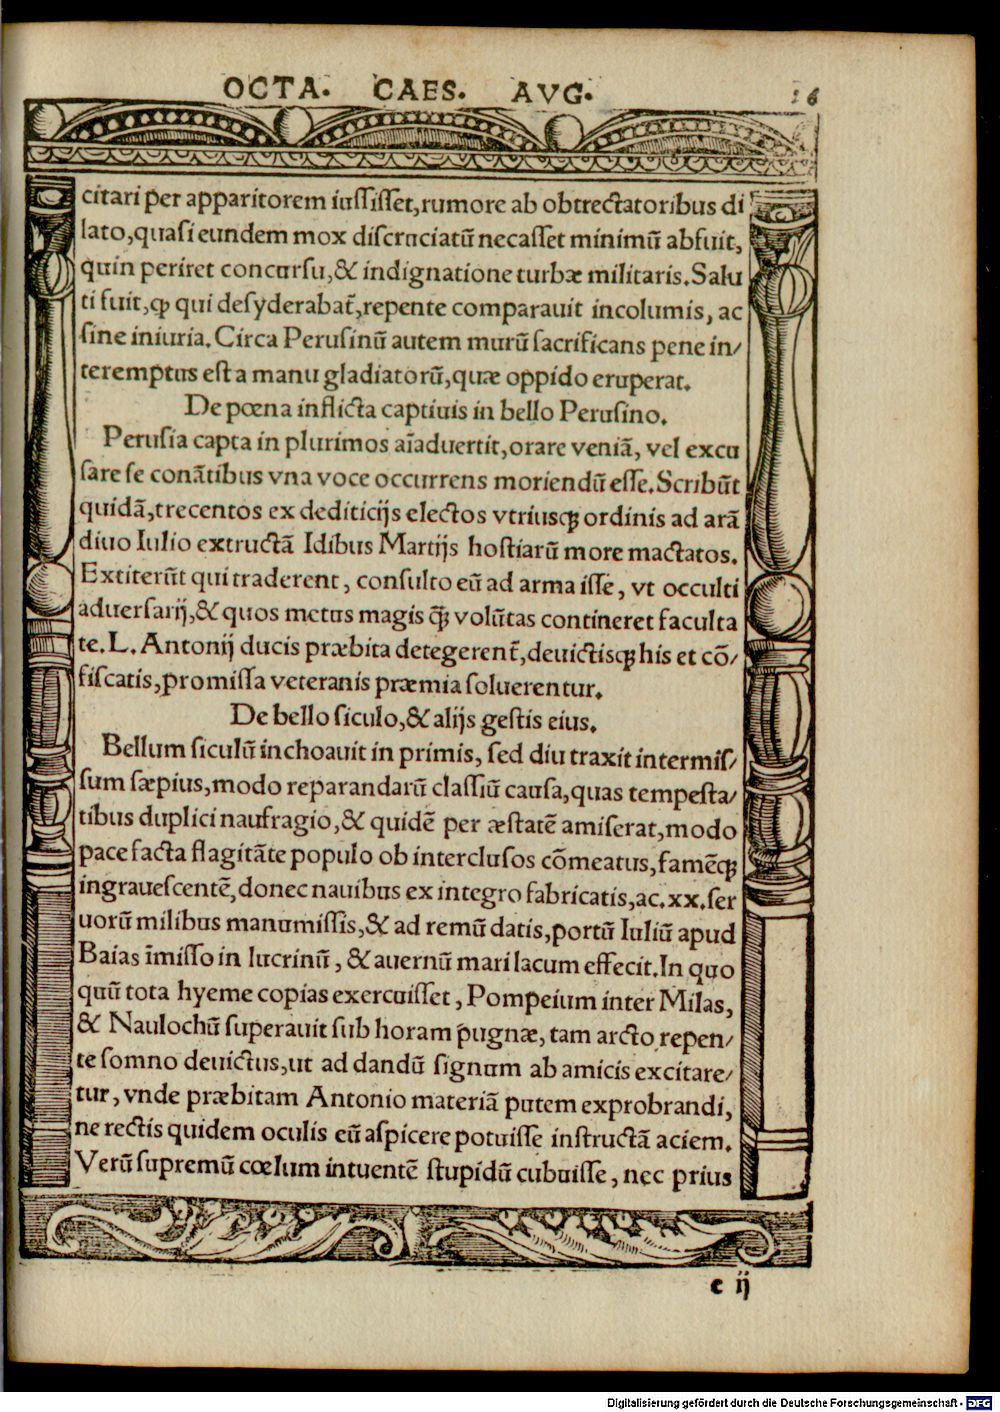 OCTA. CAES. AVG. 16
citari per apparitorem iuſſiſſet,rumore ab obtrectatoribus di
lato,quaſi eundem mox diſcruciatū necaſſet minimū abfuit,
quin periret concurſu,& indignatione turbæ militaris.Salu
ti fuit,ꝙ qui deſyderabat̃,repente comparauit incolumis, ac
ſine iniuria.Circa Peruſinū autem murū ſacrificans pene in/
teremptus eſt a manu gladiatorū,quæ oppido eruperat.
De pœna inflicta captiuis in bello Peruſino.
Peruſia capta in plurimos aīaduertit,orare veniā, vel excu
ſare ſe conātibus vna voce occurrens moriendū eſſe.Scribūt
quidā,trecentos ex dediticijs electos vtriuſqꝫ ordinis ad arā
diuo Iulio extructā Idibus Martijs hoſtiarū more mactatos.
Extiterūt qui traderent, conſulto eū ad arma iſſe, vt occulti
aduerſarij,& quos metus magis ꝗ̃ volūtas contineret faculta
te.L. Antonij ducis præbita detegerent̃,deuictiſqꝫ his et cō/
fiſcatis,promiſſa veteranis præmia ſoluerentur.
De bello ſiculo,& alijs geſtis eius.
Bellum ſiculū inchoauit in primis, ſed diu traxit intermiſ/
ſum ſæpius,modo reparandarū claſſiū cauſa,quas tempeſta/
tibus duplici naufragio,& quidē per æſtatē amiſerat,modo
pace facta flagitāte populo ob intercluſos cōmeatus,famēqꝫ
ingraueſcentē,donec nauibus ex integro fabricatis,ac.xx.ſer
uorū milibus manumiſſis,& ad remū datis,portū Iuliū apud
Baias īmiſſo in lucrinū, & auernū mari lacum effecit.In quo
quū tota hyeme copias exercuiſſet, Pompeium inter Milas,
& Naulochū ſuperauit ſub horam pugnæ, tam arcto repen/
te ſomno deuictus,ut ad dandū ſignum ab amicis excitare/
tur, vnde præbitam Antonio materiā putem exprobrandi,
ne rectis quidem oculis eū aſpicere potuiſſe inſtructā aciem.
Verū ſupremū cœlum intuentē ſtupidū cubuiſſe, nec prius
c ij
Digitalisierung gefördert durch die Deutsche Forschungsgemeinschaft - DFG